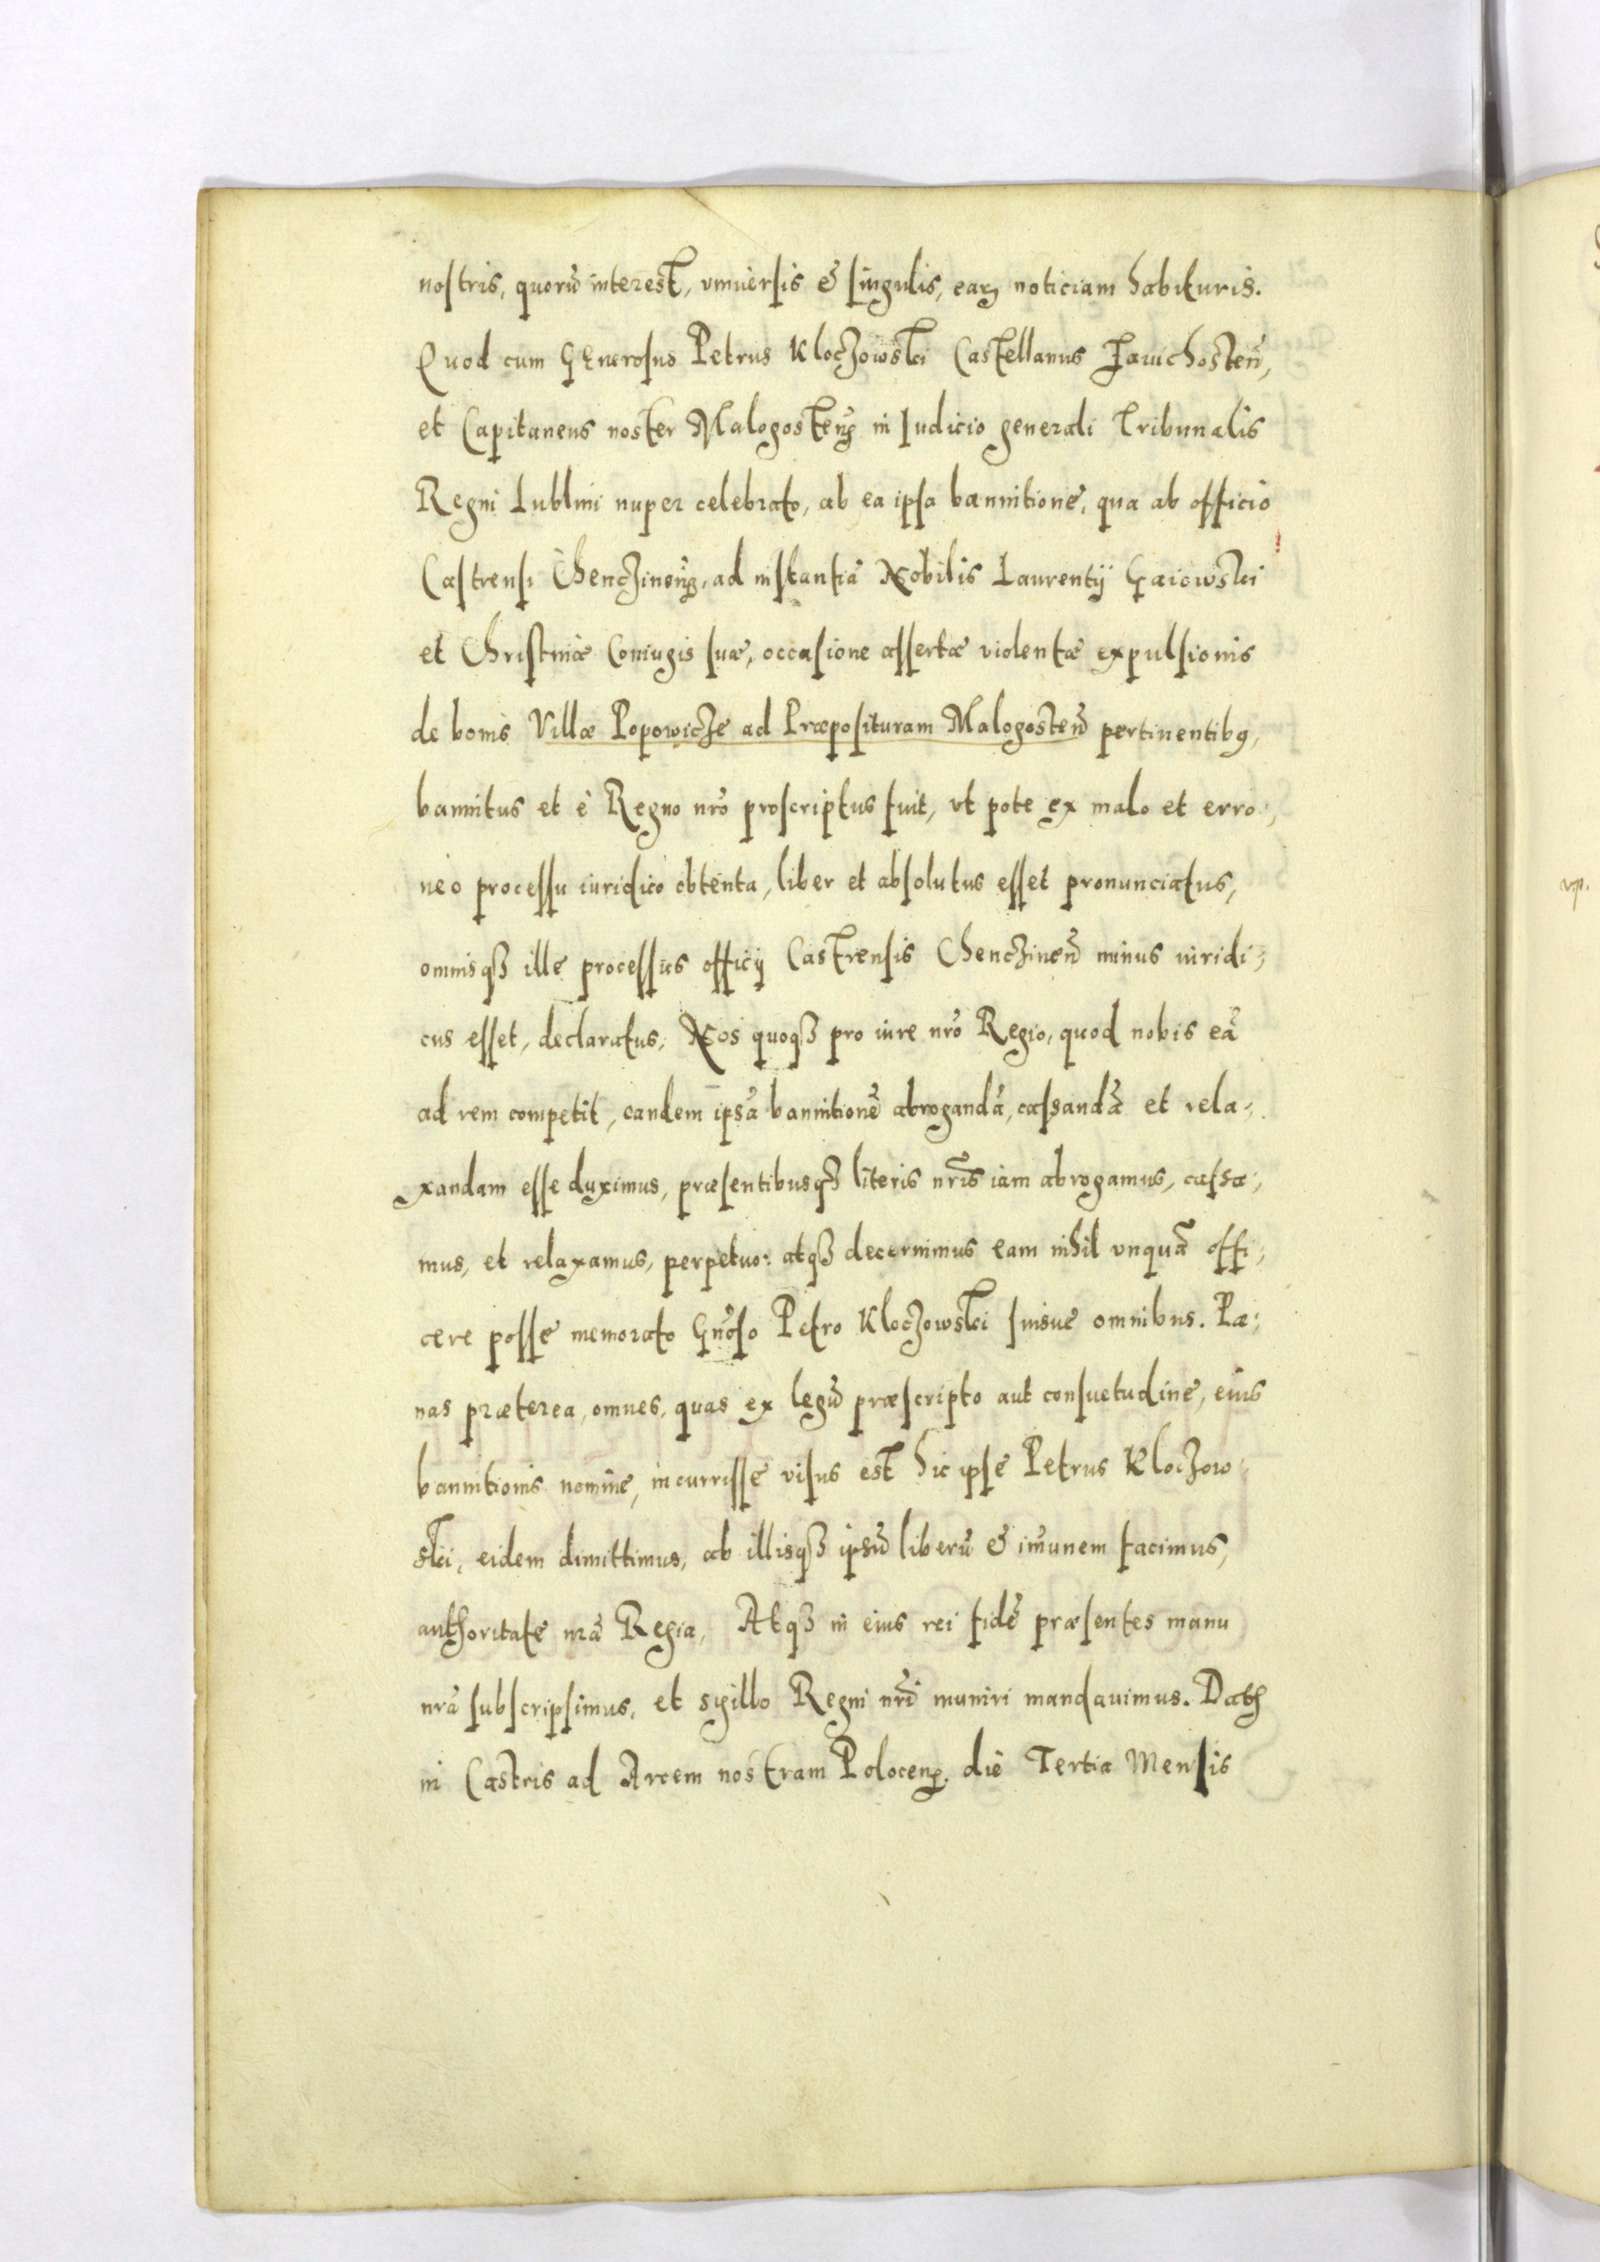 nostris, quorũ interest, vniuersis & singulis, earꝫ noticiam habituris.
Quod cum GEnerosus Petrus Kloczowski Castellanus Zawichosten̄,
et Capitaneus noster Malogosten̄ in Iudicio generali Tribunalis
Regni Lublini nuper celebrato, ab ea ipsa bannitione, qua ab officio
Castrensi Chenczinen̄, ad instantiã Nobilis Laurentij Gaiowski
et Christinæ Coniugis suæ, occasione assertæ violentæ expulsionis
de bonis Villæ Popowicze ad Præposituram Malogosten̄ pertinentibꝰ,
bannitus et è Regno nr̃o proscriptus fuit, vt pote ex malo et erro:,
neo processu iuridico obtenta, liber et absolutus esset pronunciatus,
omnisqꝫ ille processus officij Castrensis Chenczinen̄ minus iuridi:,
cus esset, declaratus, Nos quoqꝫ pro iure nr̃o Regio, quod nobis eã
ad rem competit, eandem ipsã bannitionẽ abrogandã, cassandã et rela:,
xandam esse duximus, præsentibusqꝫ literis nr̃is iam abrogamus, cassa:,
mus, et relaxamus, perpetuo: atqꝫ decernimus eam nihil vnquã offi:,
cere posse memorato Gñoso Petro Kloczowski suisue omnibus. Pæ:,
nas præterea, omnes, quas ex legũ præscripto aut consuetudine, eius
bannitionis nomine, incurrisse visus est hic ipse Petrus Kloczow:
ski, eidem dimittimus, ab illisqꝫ ipsũ liberũ & im̃unem facimus,
authoritate nr̃a Regia, Atqꝫ in eius rei fidẽ præsentes manu
nr̃a subscripsimus, et sigillo Regni nr̃i muniri mandauimus. Datꝫ
in Castris ad Arcem nostram Polocen̄. die Tertia Mensis